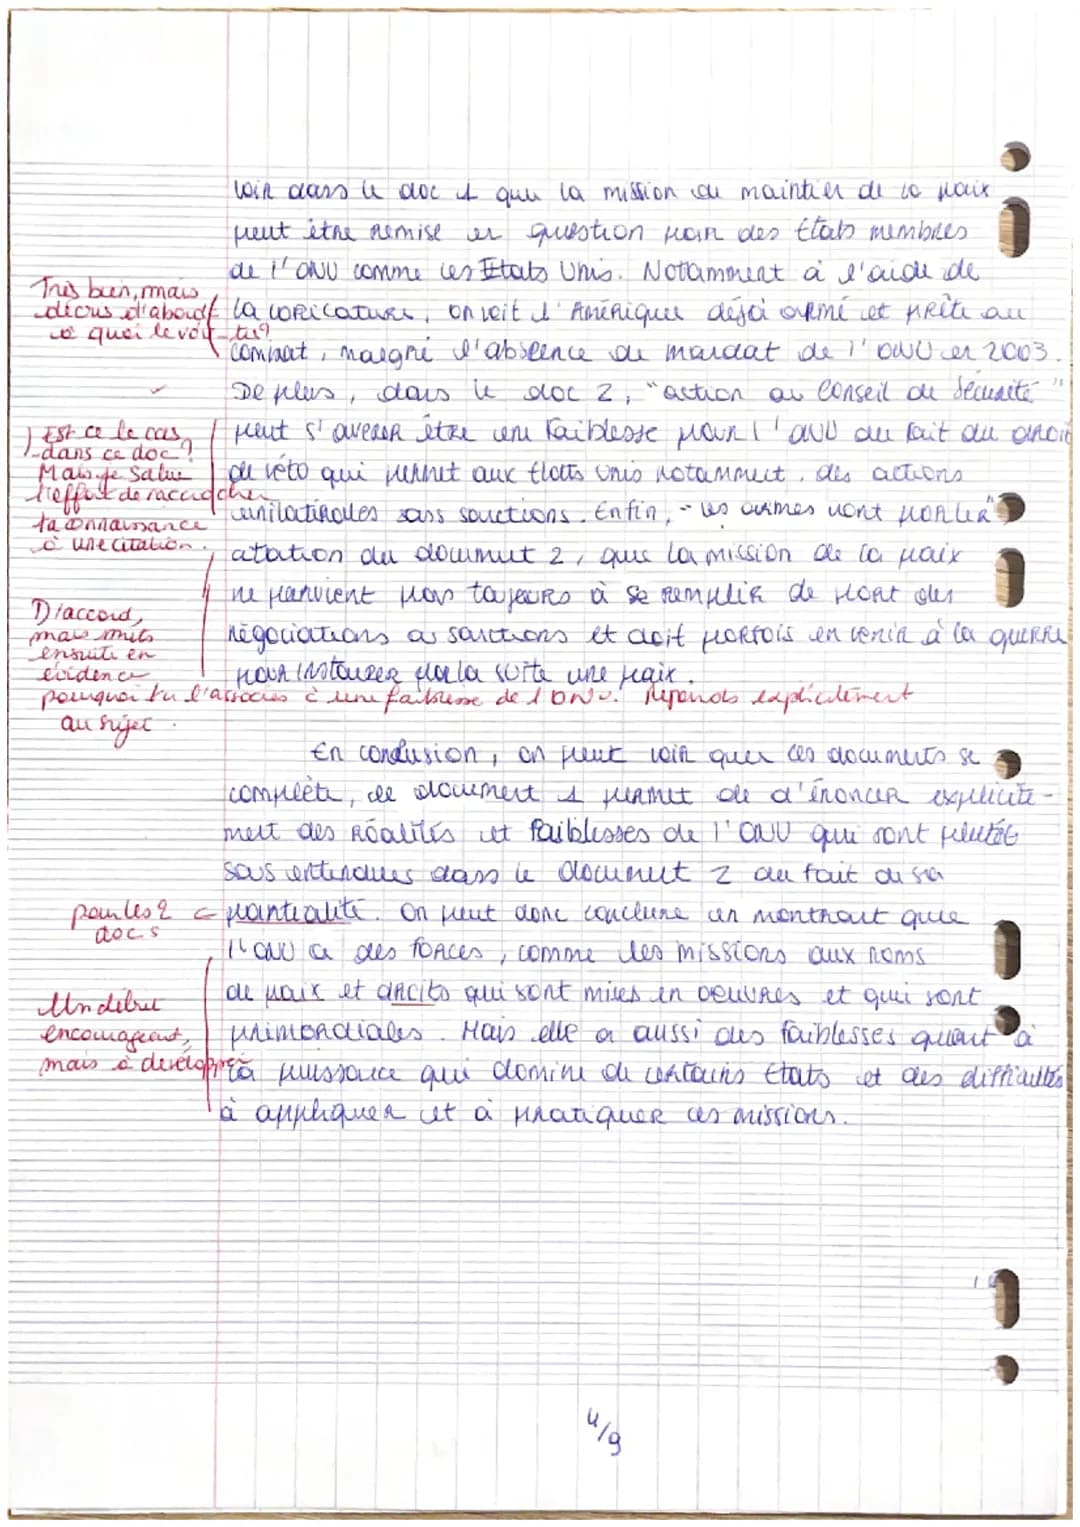 voir dans le doc 1 que la mission de maintien de la paix
peut être remise en question par des États membres
de l'ONU comme les Etats Unis. Notamment à l'aide de
Très bien, mais
décris d'abord
à quoi le vois-tu ?
la caricature, on voit l'Amérique déjà armé et prête au
combat, malgré l'absence de mandat de l'ONU en 2003.
De plus, dans le doc 2, "action au Conseil de Sécurité"
Est ce le cas
dans ce doc ?
Mais je salue
l'effort de raccrocher
ta connaissance
à une citation.
peut s'averer être une faiblesse pour l'ONU du fait du droit
de véto qui permet aux États Unis notamment, des actions
unilatérales sans sanctions. Enfin, "les armes vont parler"
citation du document 2, que la mission de la paix
D'accord,
mais mets
ensuite en
évidence
pourquoi tu l'associes à une faiblesse de l'ONU. Réponds explicitement
au sujet.
ne parvient pas toujours à se remplir de part des
négociations ou sanctions et doit parfois en venir à la guerre
pour instaurer par la suite une paix.
En conclusion, on peut voir que ces documents se
complète, le document 1 permet de d'énoncer explicite-
ment des réalités et faiblesses de l'ONU qui sont plutôt
sous entendues dans le document 2 du fait de sa
pour les 2
docs
partialité. On peut donc conclure en montrant que
l'ONU a des forces, comme les missions aux noms
Un début
encourageant,
mais à développer
de paix et droits qui sont mises en oeuvres et qui sont
primordiales. Mais elle a aussi des faiblesses quant à
la puissance qui domine de certains Etats et des difficultés
à appliquer et à pratiquer ces missions.
4/9